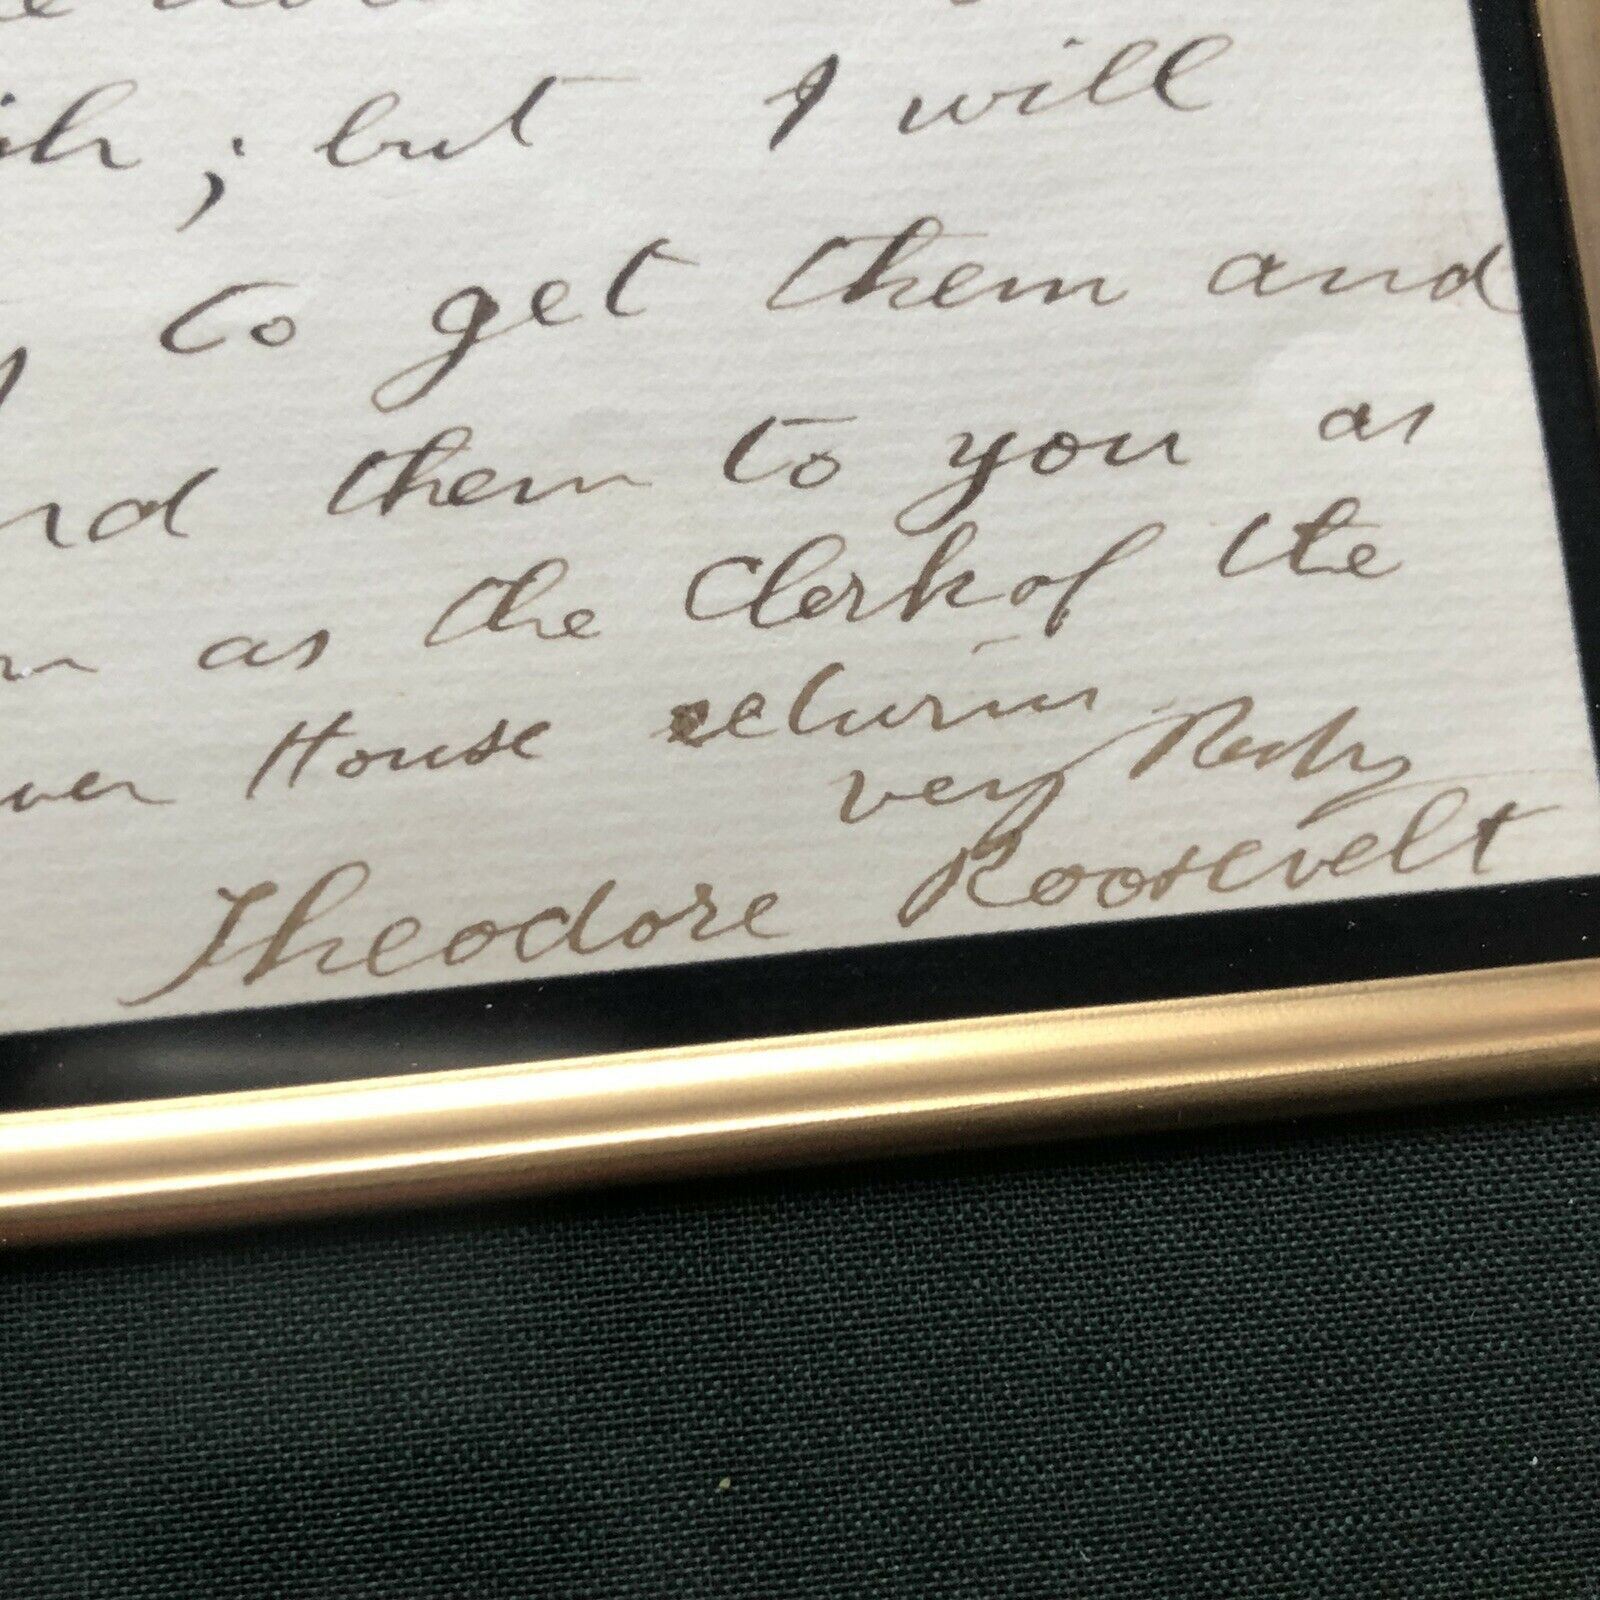 ; but I will
to get them and
them to you as
as the Clerk of the
House returns
very
Theodore Roosevelt